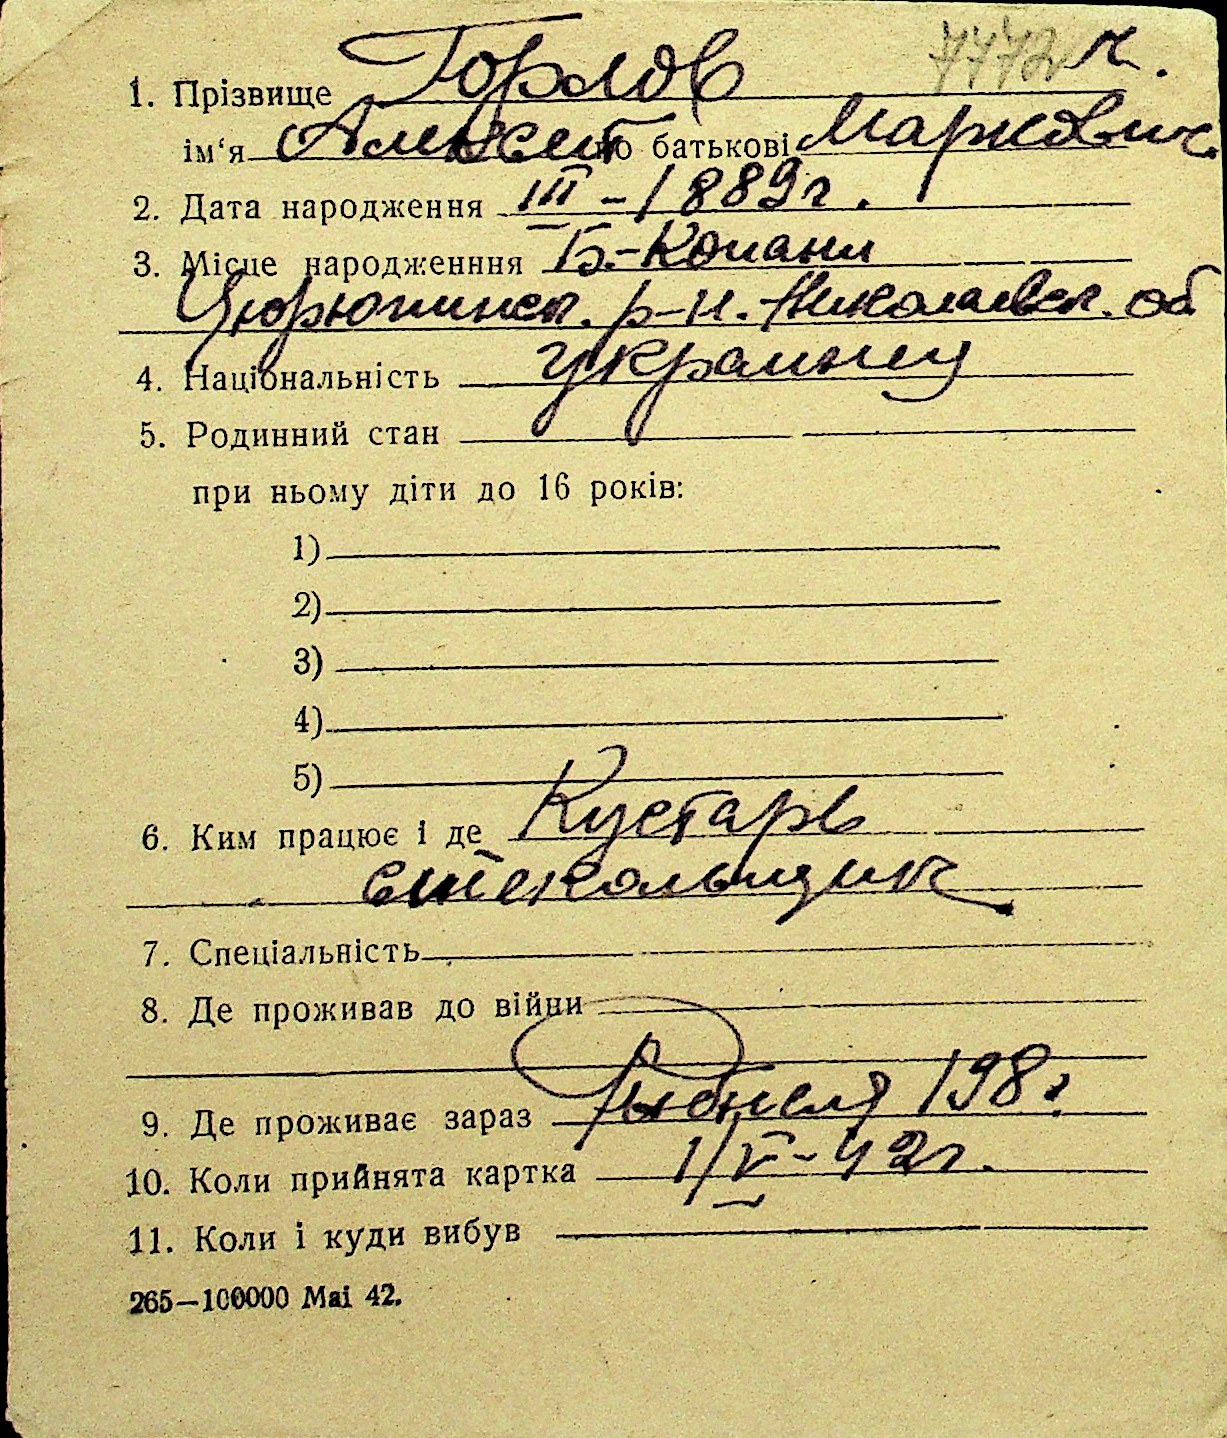 7772 ч.
1. Прізвище Горлов
ім‘я Алексей по батькові Маркович
2. Дата народження III – 1889 г.
3. Місце народженння Б.-Копани
Цюрюпинск. р-н. Николаевск. об
4. Національність украинец
5. Родинний стан
при ньому діти до 16 років:
1)
2)
3)
4)
5)
6. Ким працює і де Кустарь
стекольщик
7. Спеціальність
8. Де проживав до війни
9. Де проживає зараз 198
10. Коли прийнята картка 1/V – 42 г.
11. Коли і куди вибув
265—100000 Маі 42.